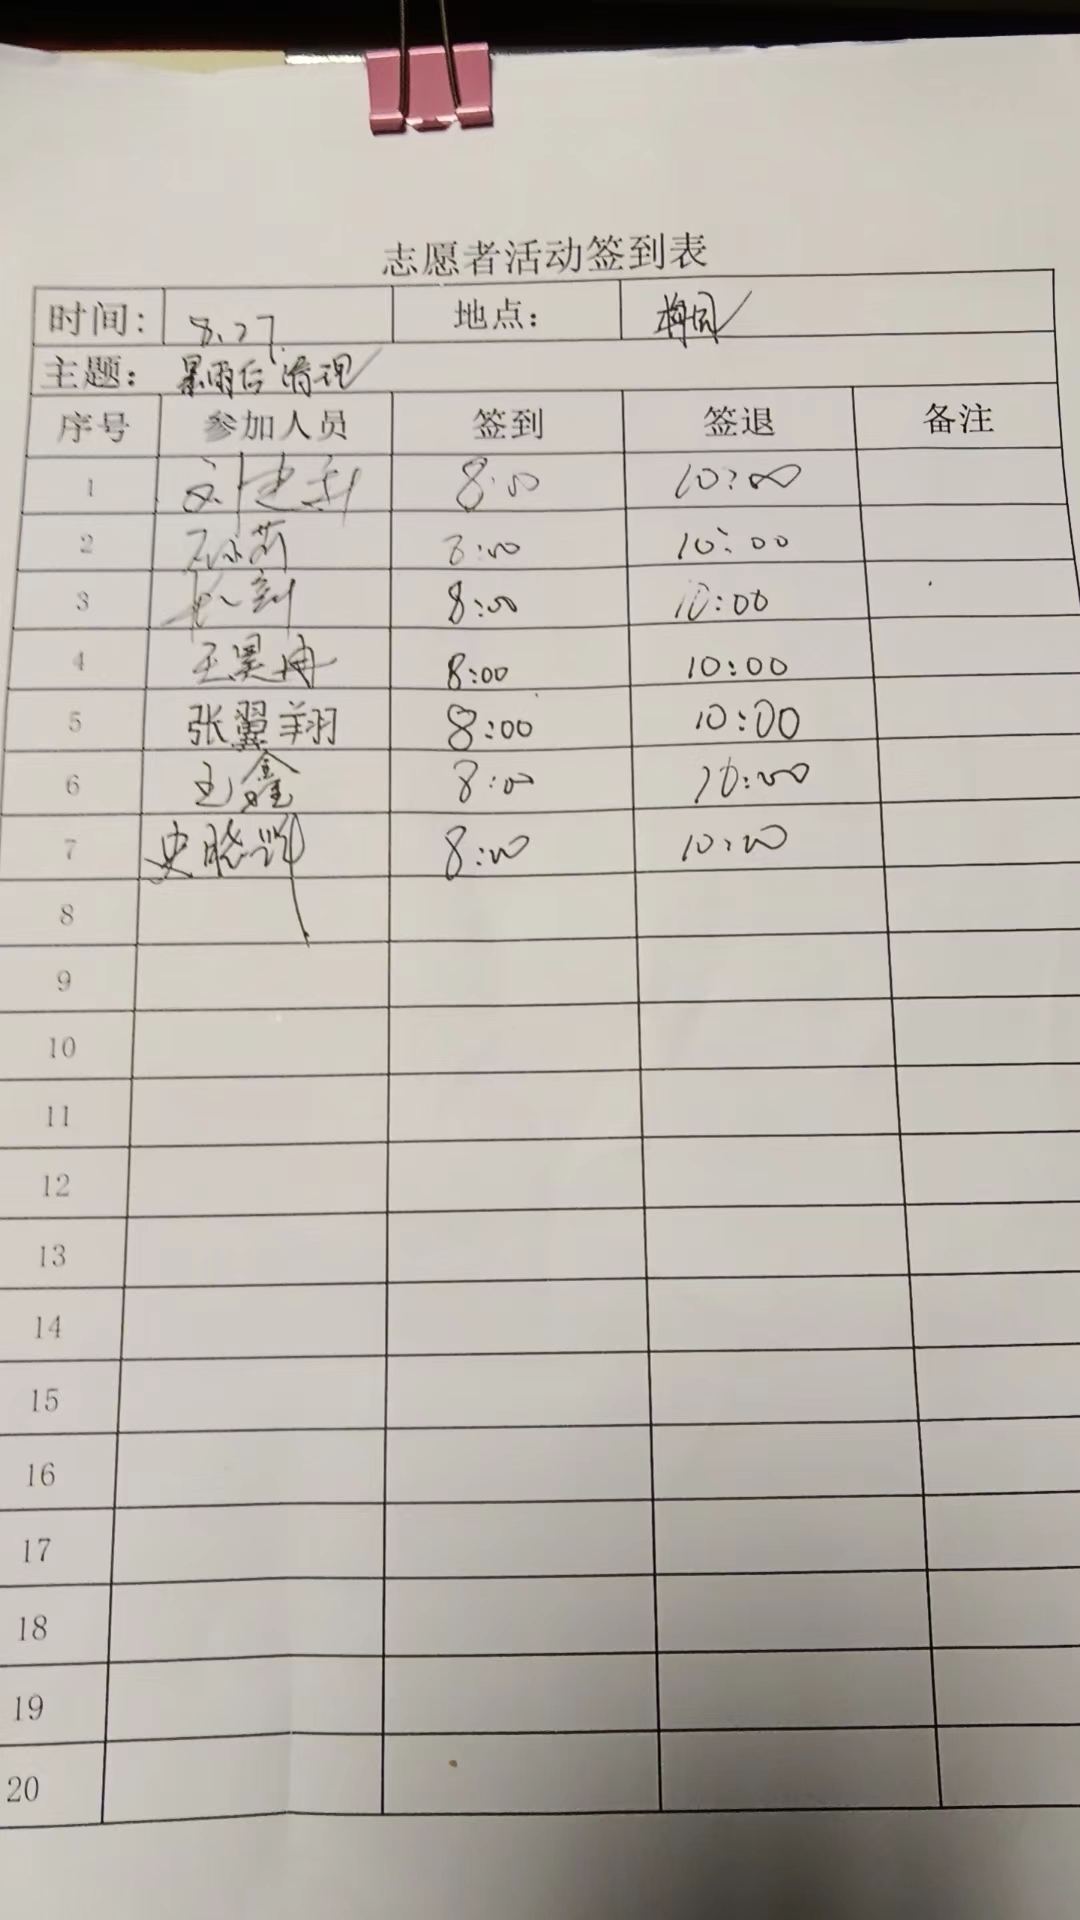 志愿者活动签到表
时间: 8.27. 地点:
主题: 暴雨后清理
序号 参加人员 签到 签退 备注
1 8:00 10:00
2 8:00 10:00
3 8:00 10:00
4 王昊冉 8:00 10:00
5 张翼翔 8:00 10:00
6 王鑫 8:00 10:00
7 史晓 8:00 10:00
8
9
10
11
12
13
14
15
16
17
18
19
20